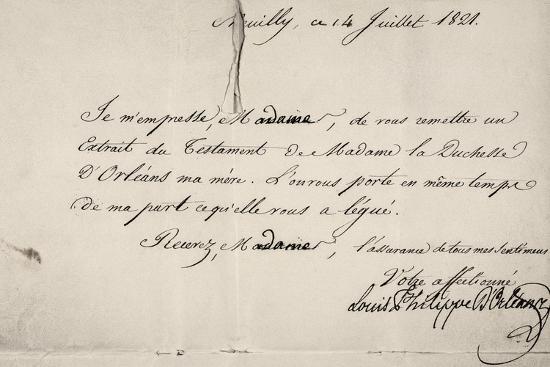 Neuilly, ce 14 Juillet 1821.
Je m'empresse, Madame, de vous remettre un
Extrait du Testament de Madame la Duchesse
D'Orléans ma mère. L'on vous porte en même temps
de ma part ce qu'elle vous a légué.
Recevez, Madame, l'assurance de tous mes sentimens
Votre affectionné
Louis Philippe D'Orléans